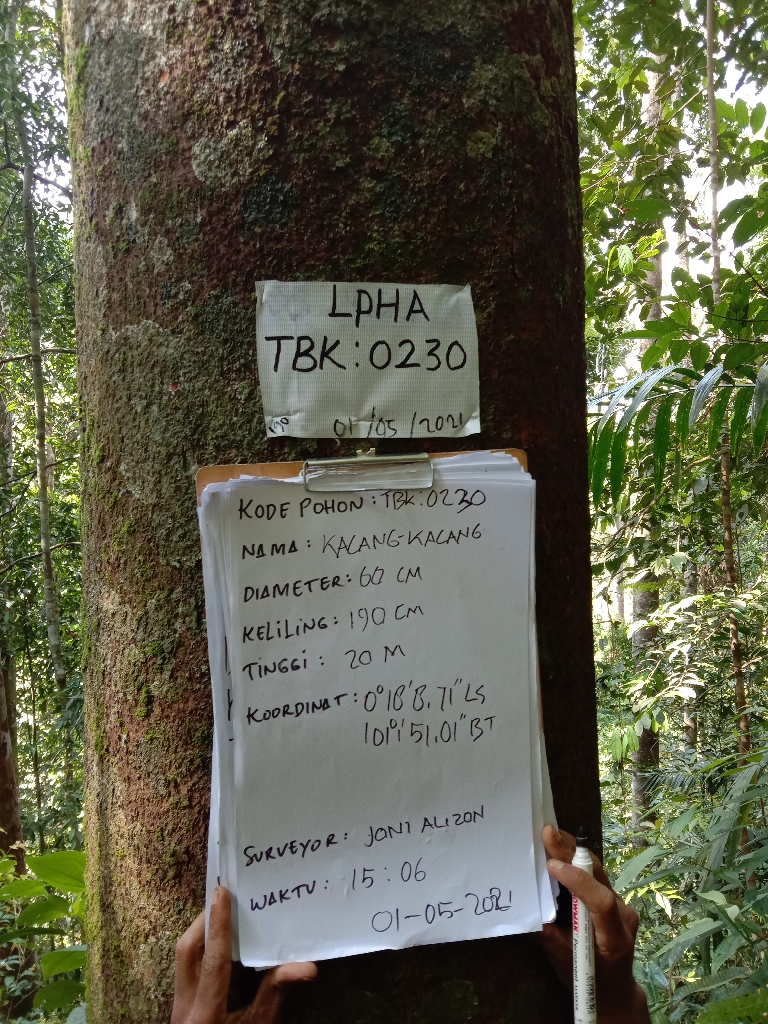 LPHA
TBK:0230
01/05/2021
KODE POHON : TBK:0230
NAMA : KACANG-KACANG
DIAMETER: 60 CM
KELILING: 190 CM
TINGGI : 20 M
KOORDINAT : 0°18'8.71" LS
101°1'51.01" BT
SURVEYOR: JONI ALIZON
WAKTU : 15:06
01-05-2021
SNOWMAN Permanent